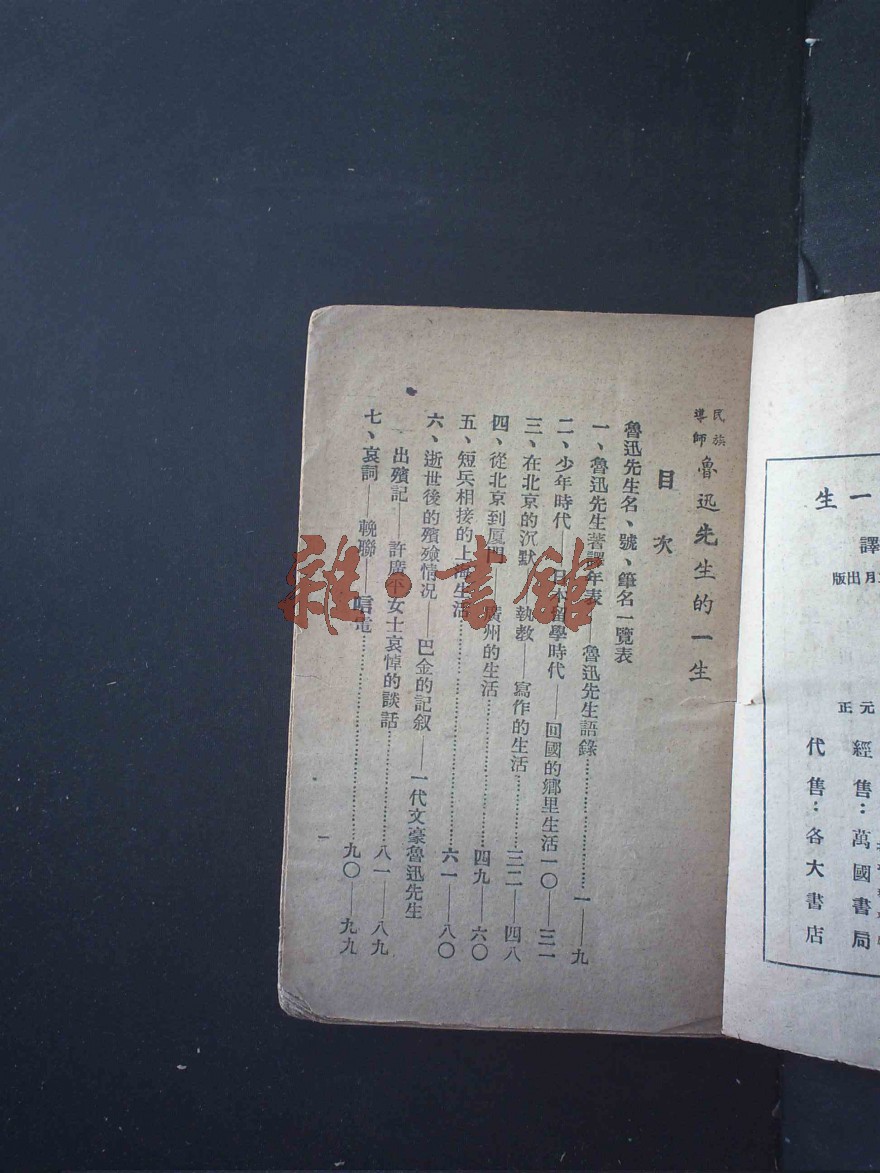 民族導師 魯迅先生的一生
目次
魯迅先生名、號、筆名一覽表
一、魯迅先生著譯年表——魯迅先生語錄……………………一——九
二、少年時代——日本留學時代——回國的鄉里生活一〇——三一
三、在北京的沉默——執教——寫作的生活…………三二——四八
四、從北京到厦門——廣州的生活……………………四九——六〇
五、短兵相接的上海生活………………………………六一——八〇
六、逝世後的殯殮情况——巴金的記叙——一代文豪魯迅先生
出殯記——許廣平女士哀悼的談話……………………八一——八九
七、哀詞——輓聯——唁電……………………………九〇——九九
一
一生
譯
月出版
元正
經售：萬國書局
代售：各大書店
雜·書館